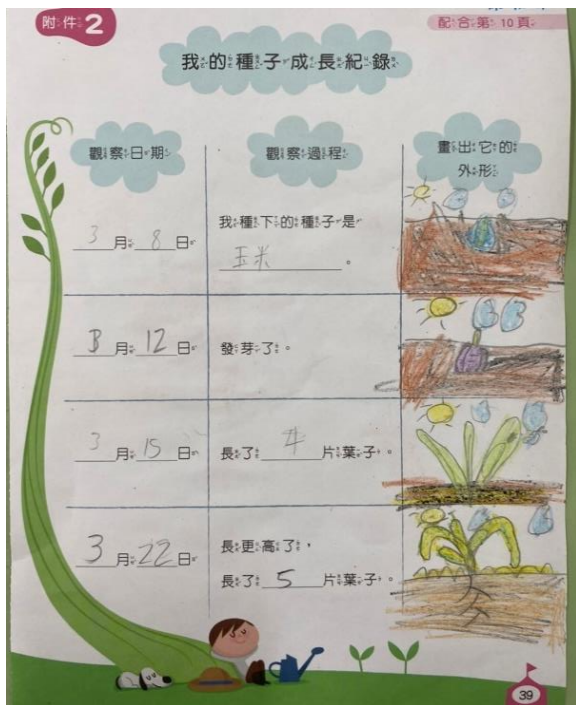 附件2
配合第10頁
我的種子成長紀錄
觀察日期
觀察過程
畫出它的
外形
3月8日
我種下的種子是
玉米。
3月12日
發芽了。
3月15日
長了4片葉子。
3月22日
長更高了,
長了5片葉子。
39